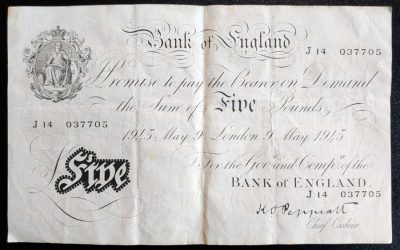 Bank of England
J 14 037705
I Promise to pay the Bearer on Demand
the Sum of Five Pounds
J 14 037705
1945 May 9 London 9 May 1945
For the Govr. and Compa. of the
BANK OF ENGLAND.
J 14 037705
£ Five
K O Peppiatt
Chief Cashier